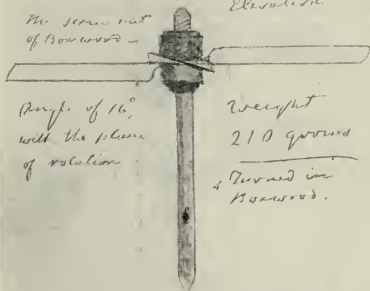 The screw nut
of Boxwood –
Elevation.
Angle of 16°,
with the plane
of rotation.
Weight
210 grains
Turned in
Boxwood.